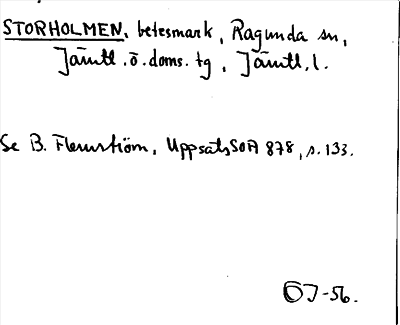 STORHOLMEN, betesmark, Ragunda sn,
Jämtl. ö. doms. tg, Jämtl. l.
Se B. Flemström, Uppsats SOA 878, s. 133.
OJ-56.